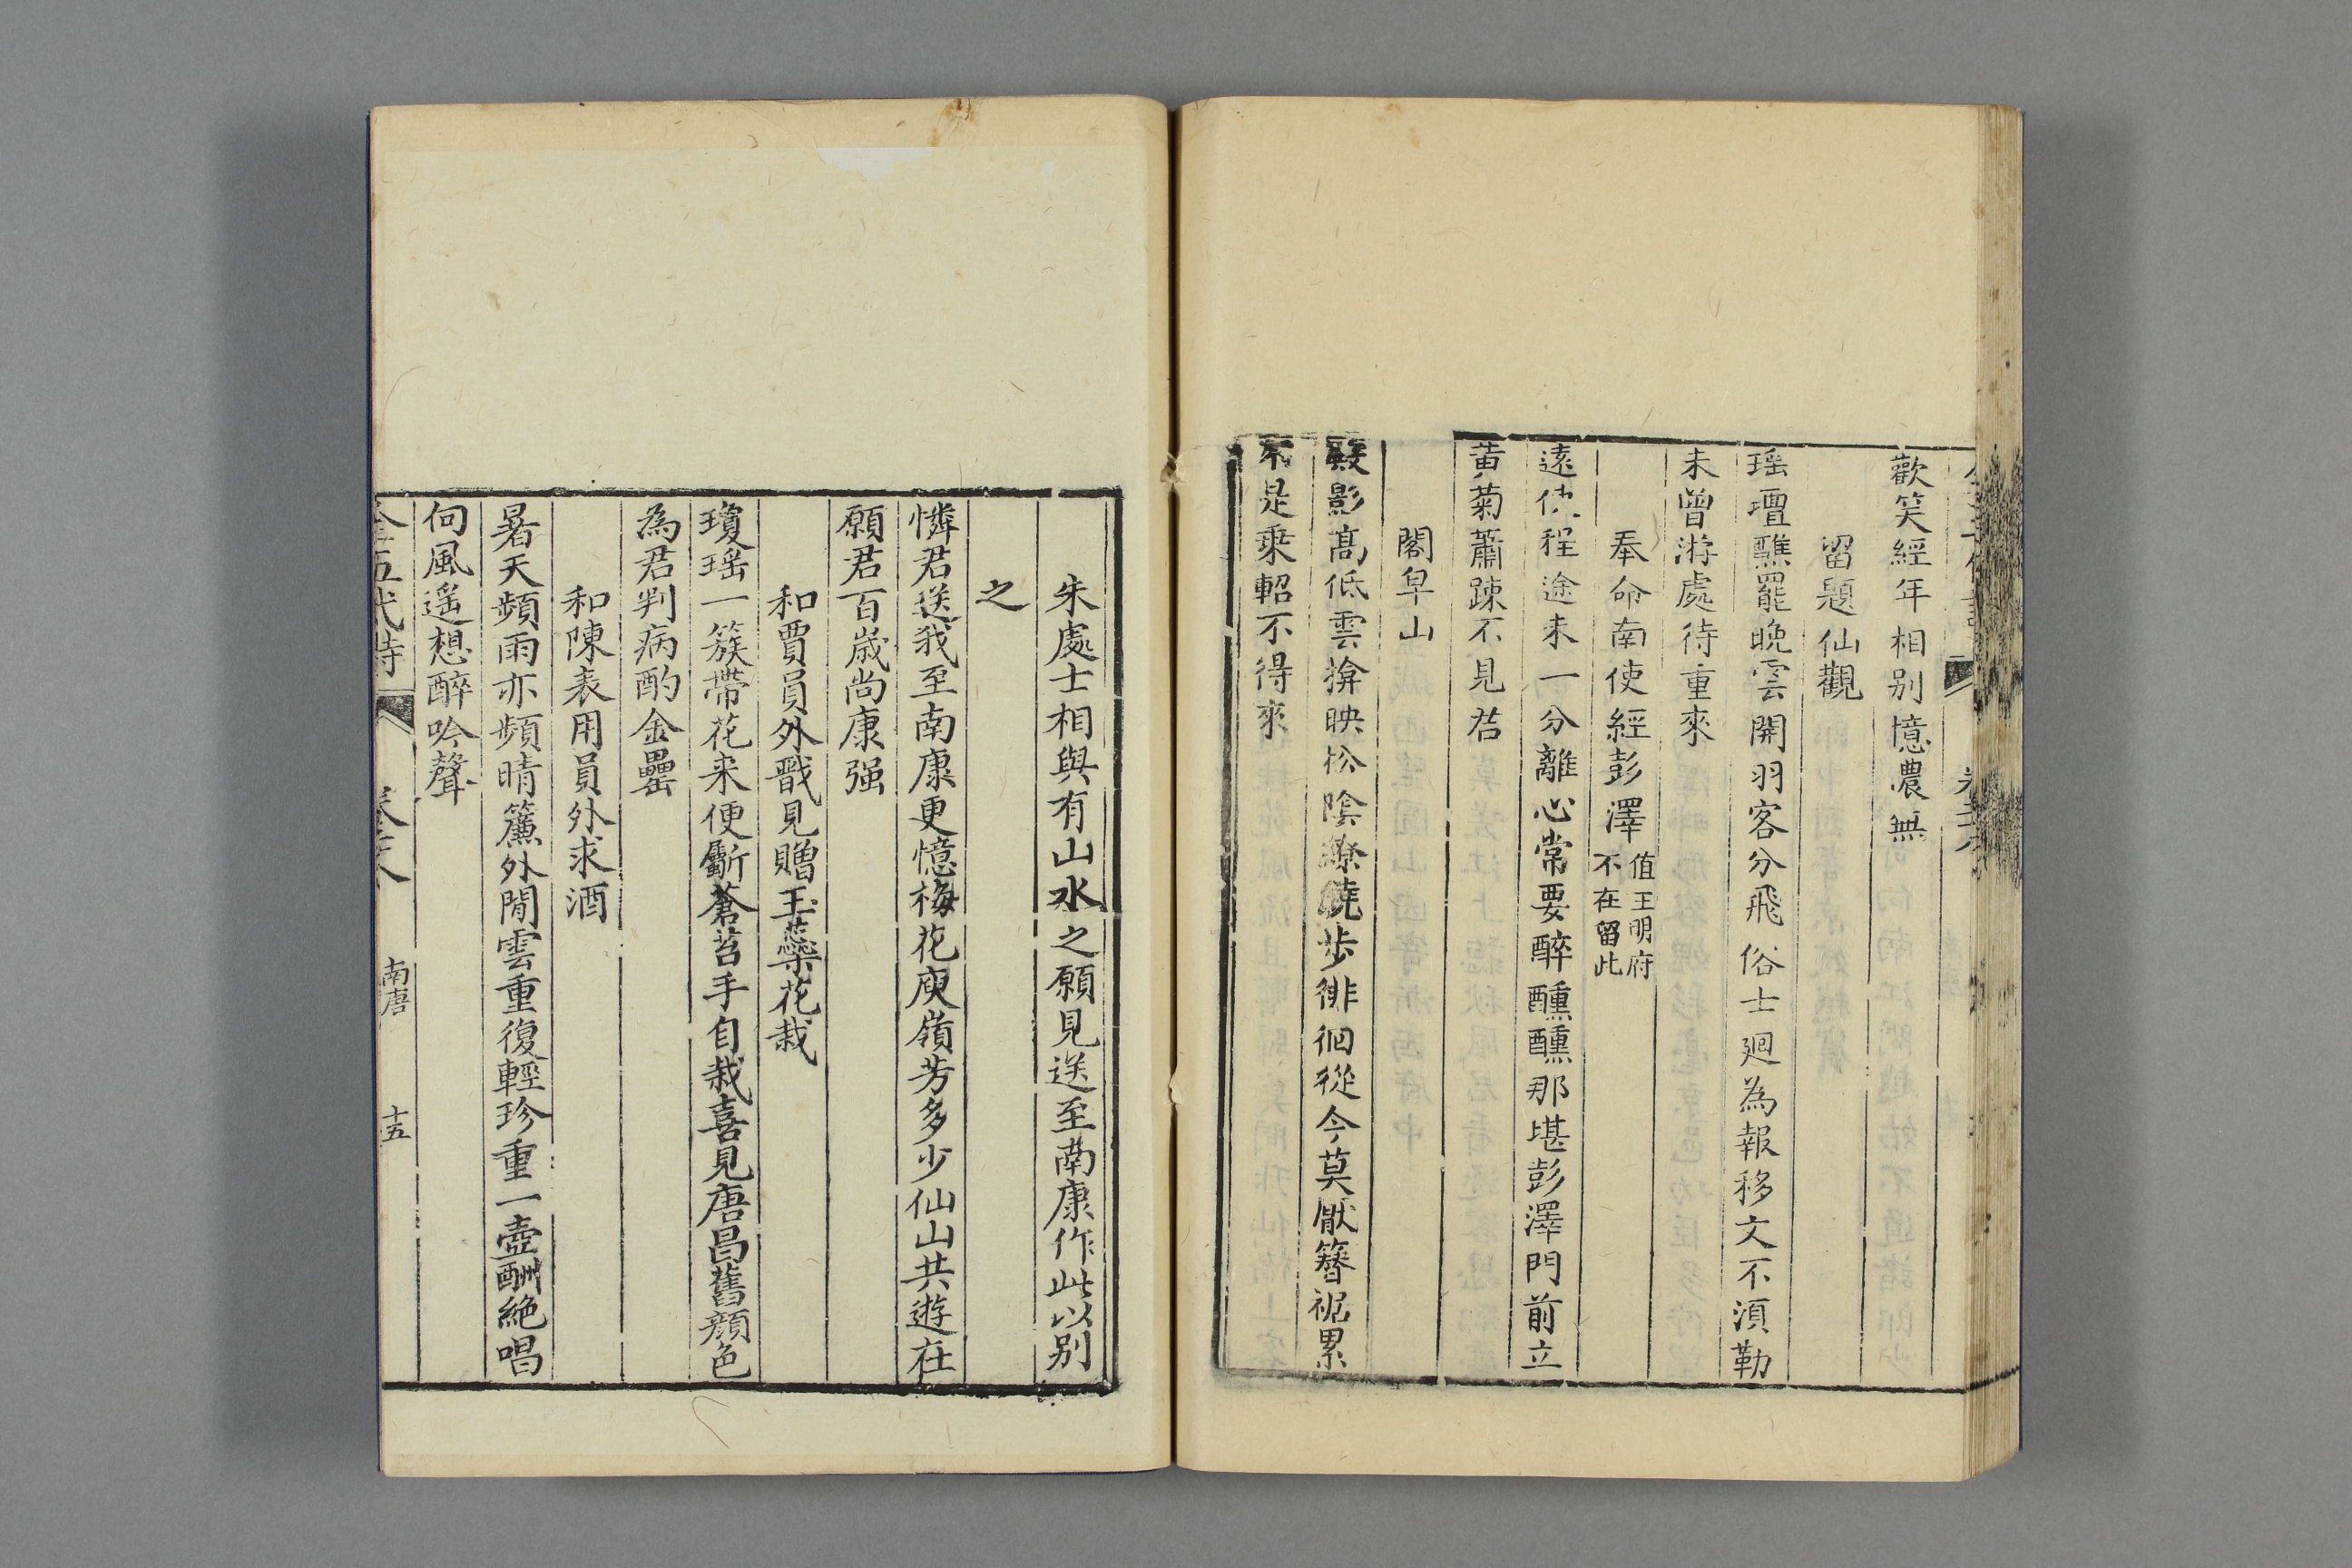 歡笑經年相别憶儂無
留題仙觀
瑶壇醮罷晚雲開羽客分飛俗士迴為報移文不湏勒
未曾游處待重來
奉命南使經彭澤值王明府不在留此
遠使程途未一分離心常要醉醺醺那堪彭澤門前立
黄菊蕭踈不見君
閣皁山
殿影髙低雲揜映松陰繚繞步徘徊從今莫厭簪裾累
不是乗軺不得來
朱處士相與有山水之願見送至南康作此以别
之
憐君送我至南康更憶梅花庾嶺芳多少仙山共遊在
願君百歲尚康强
和賈員外戩見贈玉蘂花栽
瓊瑶一簇帶花来便斸蒼苔手自栽喜見唐昌舊顔色
為君判病酌金罍
和陳表用員外求酒
暑天頻雨亦頻晴簾外閒雲重復輕珍重一壺酬絶唱
向風遥想醉吟聲
全五代詩
南唐
十五